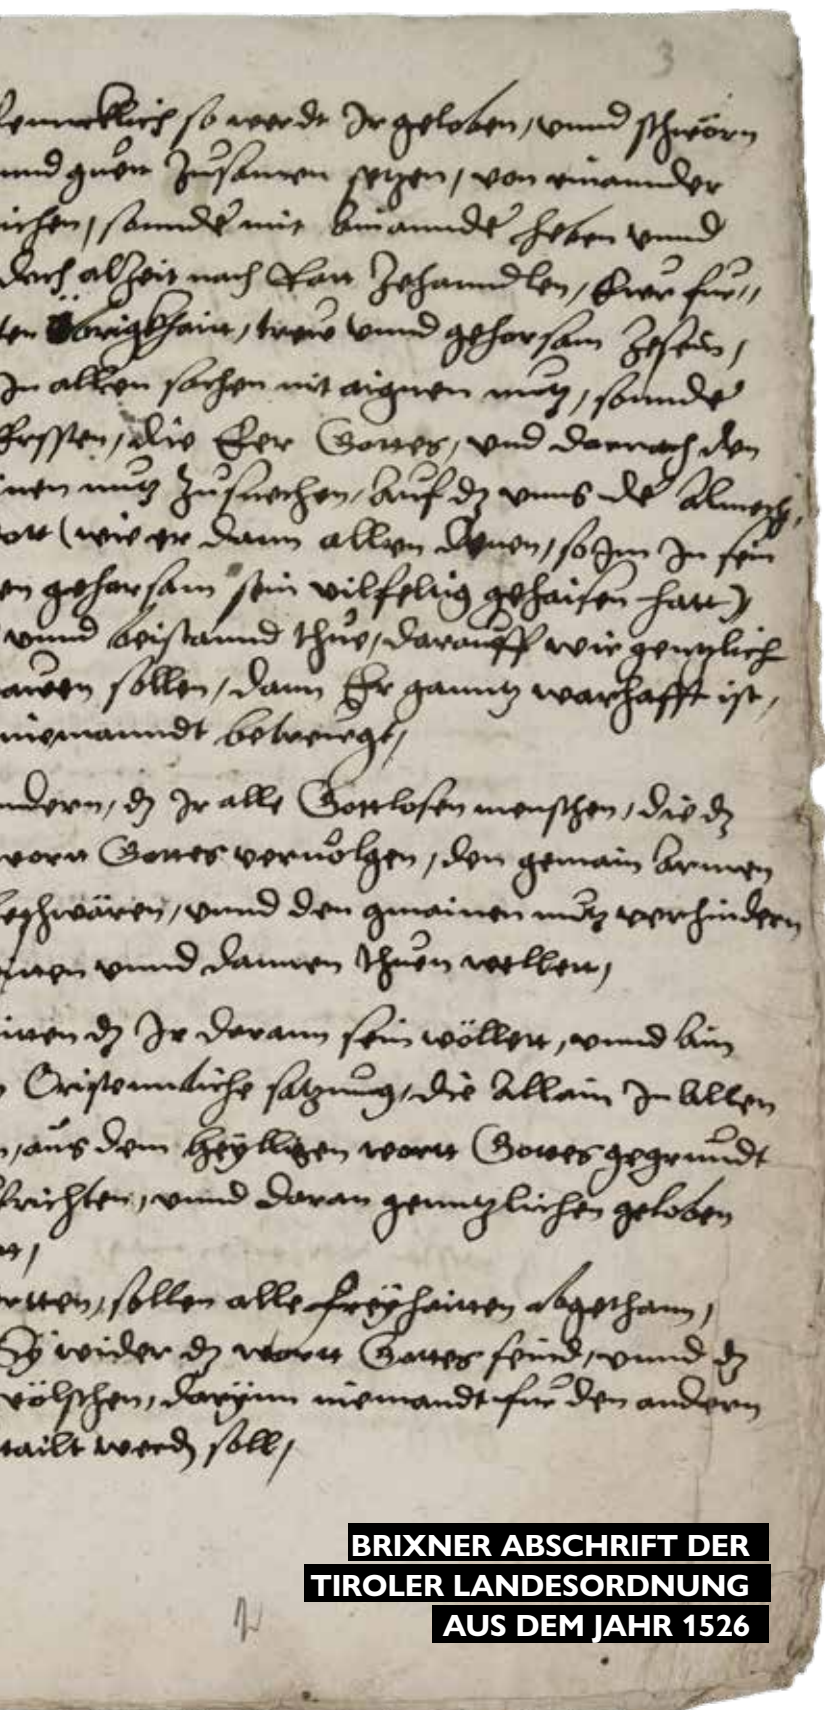 3
so werdt Ir geloben, unnd schwörn
unnd guet Zusamen setzen, von einannder
sonnder mit einannder heben unnd
doch alzeit nach Ratt Zehanndlen, Eurer für„
Öbrigkhait, treu unnd gehorsam Zesein,
In allen sachen nit aignen nutz, sonnder
die Eer Gottes, und darnach den
nutz Zusuechen, Auf dz unns der Almech,
(wie er dann allen denen, so Im In sein
gehorsam sein vilfeltig gehaisen hatt)
unnd beistannd thue, darauff wir gentzlich
sollen, dann Er ganntz warhafft ist,
niemanndt betreugt,
dz Ir alle Gottlosen menschen, die dz
wortt Gottes vervolgen, den gemain Armen
unnd den gmainen nutz verhindern
unnd dannen thuen wellen,
dz Ir darann sein wöllett, unnd Ain
Cristennliche satzung, die Allain In Allen
aus dem heylligen wortt Gottes gegrundt
unnd daran genntzlichen geloben
sollen alle freyhaitten abgethann,
Sy wider dz wortt Gottes seind, unnd dz
völschen, darynn niemandt für den andern
werdn soll,
BRIXNER ABSCHRIFT DER
TIROLER LANDESORDNUNG
AUS DEM JAHR 1526